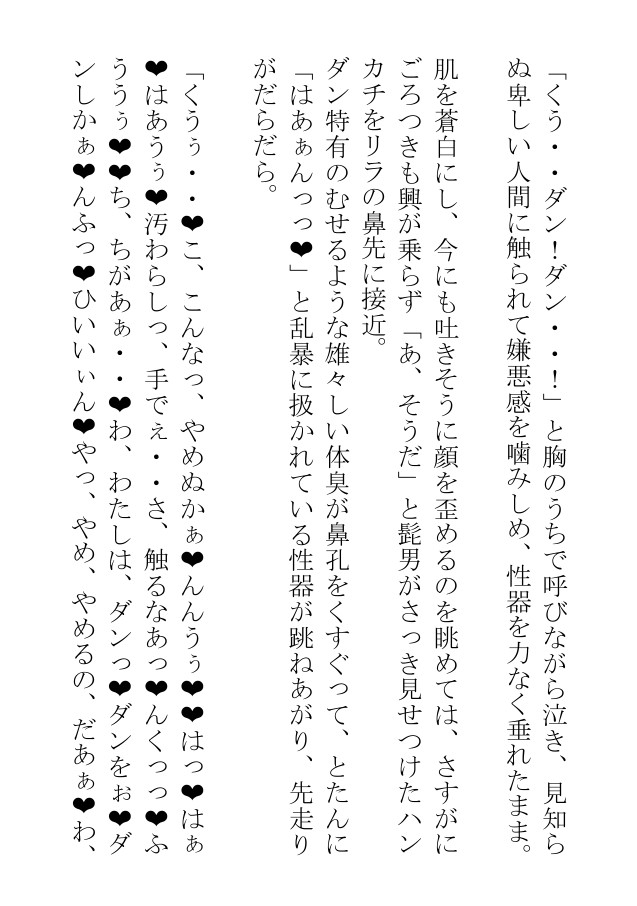 「くう・・ダン！ダン・・！」と胸のうちで呼びながら泣き、見知ら
ぬ卑しい人間に触られて嫌悪感を噛みしめ、性器を力なく垂れたまま。
肌を蒼白にし、今にも吐きそうに顔を歪めるのを眺めては、さすがに
ごろつきも興が乗らず「あ、そうだ」と髭男がさっき見せつけたハン
カチをリラの鼻先に接近。
ダン特有のむせるような雄々しい体臭が鼻孔をくすぐって、とたんに
「はあぁんっっ❤」と乱暴に扱かれている性器が跳ねあがり、先走り
がだらだら。
「くうぅ・・❤こ、こんなっ、やめぬかぁ❤んんうぅ❤❤はっ❤はぁ
❤はあうぅ❤汚わらしっ、手でぇ・・さ、触るなあっ❤んくっっ❤ふ
ううぅ❤❤ち、ちがあぁ・・❤わ、わたしは、ダンっ❤ダンをぉ❤ダ
ンしかぁ❤んふっ❤ひいいぃん❤やっ、やめ、やめるの、だあぁ❤わ、